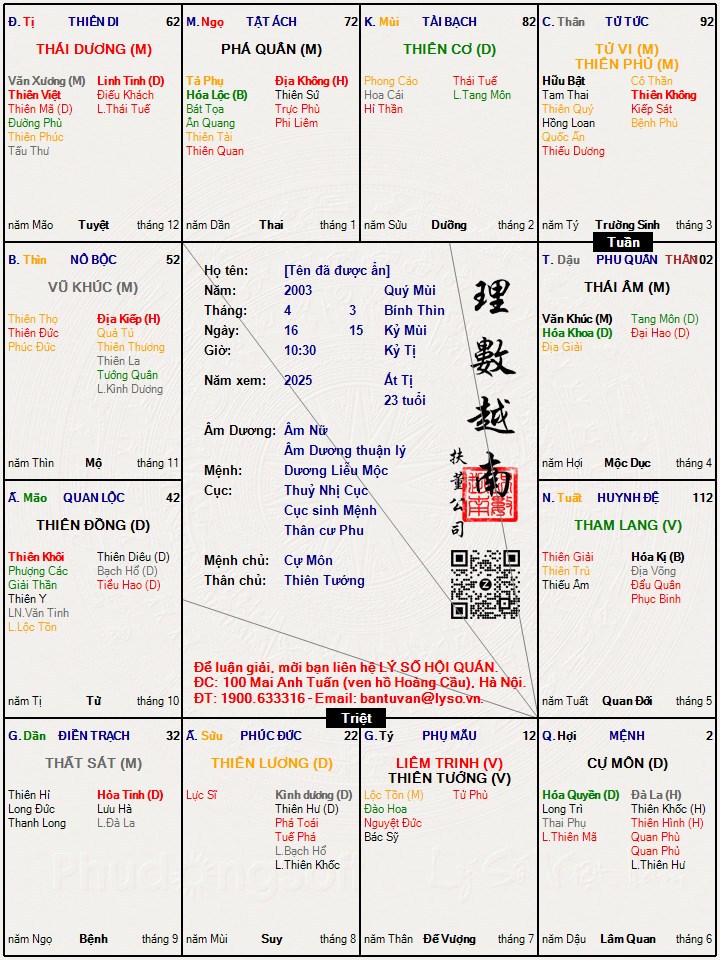 Đ. Tị THIÊN DI 62
THÁI DƯƠNG (M)
Văn Xương (M) Linh Tinh (D)
Thiên Việt Điếu Khách
Thiên Mã (D) L.Thái Tuế
Đường Phù
Thiên Phúc
Tấu Thư
năm Mão Tuyệt tháng 12
M. Ngọ TẬT ÁCH 72
PHÁ QUÂN (M)
Tả Phụ Địa Không (H)
Hóa Lộc (B) Thiên Sứ
Bát Tọa Trực Phù
Ân Quang Phi Liêm
Thiên Tài
Thiên Quan
năm Dần Thai tháng 1
K. Mùi TÀI BẠCH 82
THIÊN CƠ (D)
Phong Cáo Thái Tuế
Hoa Cái L.Tang Môn
Hỉ Thần
năm Sửu Dưỡng tháng 2
C. Thân TỬ TỨC 92
TỬ VI (M)
THIÊN PHỦ (M)
Hữu Bật Cô Thần
Tam Thai Thiên Không
Thiên Quý Kiếp Sát
Hồng Loan Bệnh Phù
Quốc Ấn
Thiếu Dương
năm Tý Trường Sinh tháng 3
Tuần
B. Thìn NÔ BỘC 52
VŨ KHÚC (M)
Thiên Thọ Địa Kiếp (H)
Thiên Đức Quả Tú
Phúc Đức Thiên Thương
Thiên La
Tướng Quân
L.Kình Dương
năm Thìn Mộ tháng 11
Họ tên: [Tên đã được ẩn]
Năm: 2003 Quý Mùi
Tháng: 4 3 Bính Thìn
Ngày: 16 15 Kỷ Mùi
Giờ: 10:30 Kỷ Tị
Năm xem: 2025 Ất Tị
23 tuổi
Âm Dương: Âm Nữ
Âm Dương thuận lý
Mệnh: Dương Liễu Mộc
Cục: Thuỷ Nhị Cục
Cục sinh Mệnh
Thân cư Phu
Mệnh chủ: Cự Môn
Thân chủ: Thiên Tướng
理數越南
扶董公司
Để luận giải, mời bạn liên hệ LÝ SỐ HỘI QUÁN.
ĐC: 100 Mai Anh Tuấn (ven hồ Hoàng Cầu), Hà Nội.
ĐT: 1900.633316 - Email: bantuvan@lyso.vn.
T. Dậu PHU QUÂN THÂN 102
THÁI ÂM (M)
Văn Khúc (M) Tang Môn (D)
Hóa Khoa (D) Đại Hao (D)
Địa Giải
năm Hợi Mộc Dục tháng 4
Ấ. Mão QUAN LỘC 42
THIÊN ĐỒNG (D)
Thiên Khôi Thiên Diêu (D)
Phượng Các Bạch Hổ (D)
Giải Thần Tiểu Hao (D)
Thiên Y
LN.Văn Tinh
L.Lộc Tồn
năm Tị Tử tháng 10
N. Tuất HUYNH ĐỆ 112
THAM LANG (V)
Thiên Giải Hóa Kị (B)
Thiên Trù Địa Võng
Thiếu Âm Đẩu Quân
Phục Binh
năm Tuất Quan Đới tháng 5
Triệt
G. Dần ĐIỀN TRẠCH 32
THẤT SÁT (M)
Thiên Hỉ Hỏa Tinh (D)
Long Đức Lưu Hà
Thanh Long L.Đà La
năm Ngọ Bệnh tháng 9
Ấ. Sửu PHÚC ĐỨC 22
THIÊN LƯƠNG (D)
Lực Sĩ Kình dương (D)
Thiên Hư (D)
Phá Toái
Tuế Phá
L.Bạch Hổ
L.Thiên Khốc
năm Mùi Suy tháng 8
G. Tý PHỤ MẪU 12
LIÊM TRINH (V)
THIÊN TƯỚNG (V)
Lộc Tồn (M) Tử Phù
Đào Hoa
Nguyệt Đức
Bác Sỹ
năm Thân Đế Vượng tháng 7
Q. Hợi MỆNH 2
CỰ MÔN (D)
Hóa Quyền (D) Đà La (H)
Long Trì Thiên Khốc (H)
Thai Phụ Thiên Hình (H)
L.Thiên Mã Quan Phù
Quan Phủ
L.Thiên Hư
năm Dậu Lâm Quan tháng 6